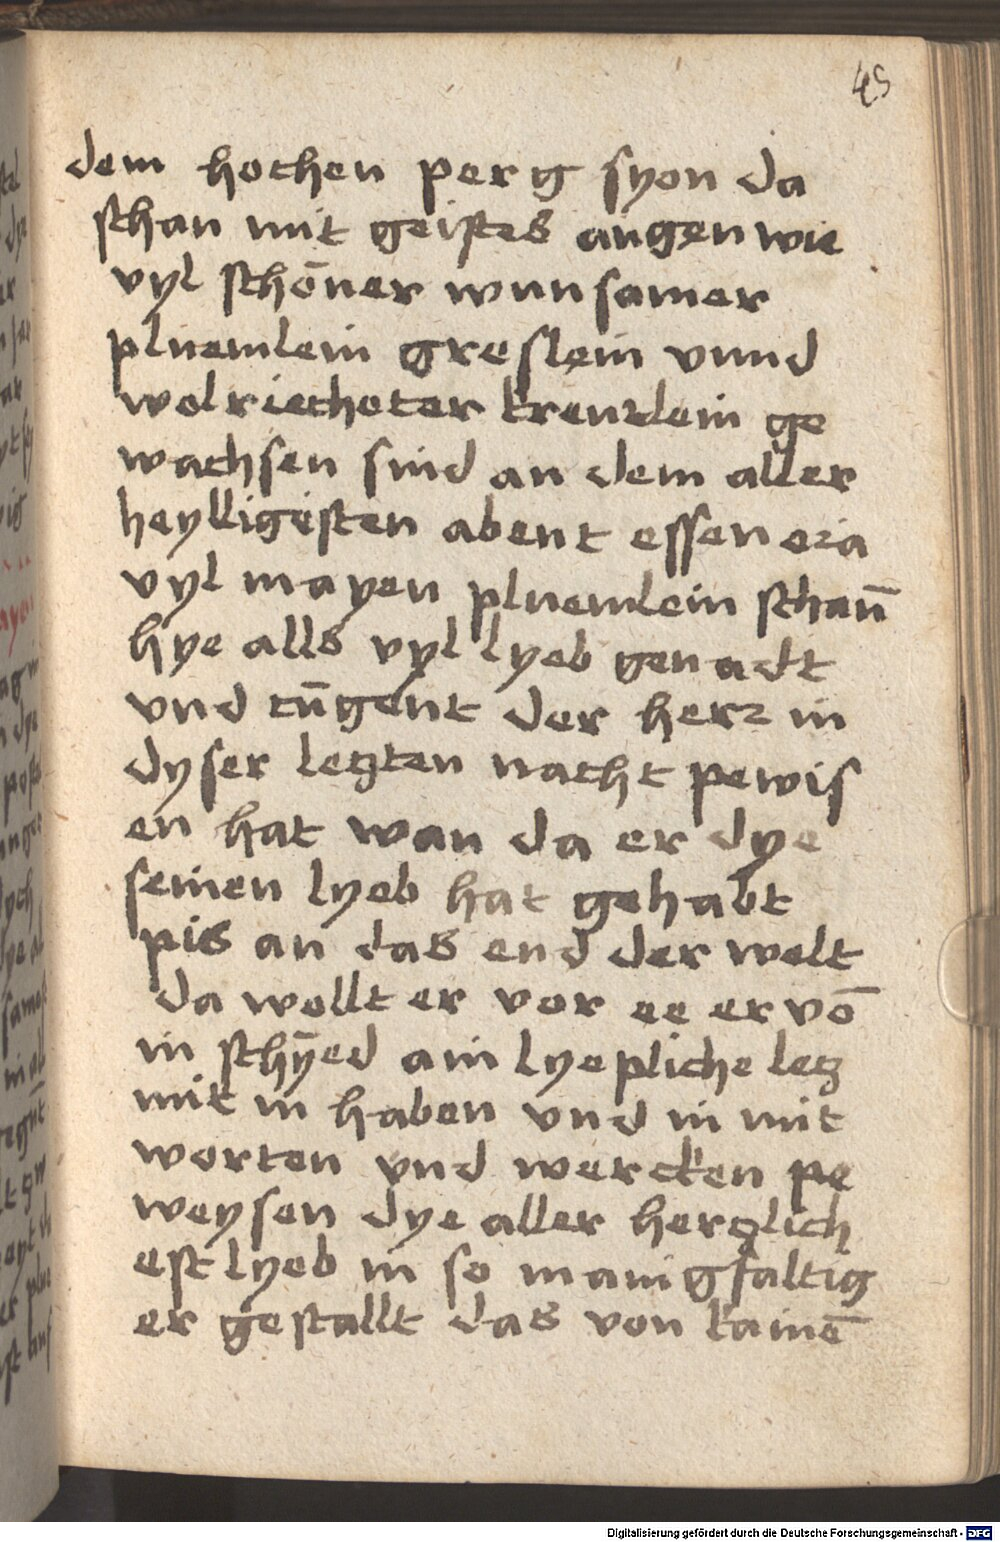 45
dem hochen perg syon da
schau mit geistes augen wie
vyl schōner wunsamer
pluemlein greslein vnnd
wolriechoter kreutlein ge
wachsen sind an dem aller
heylligisten abent essen eia
vyl mayen pluemlein schaū
hye alls vyl lyeb genadt
vnd tūgent der herz in
dyser letzten nacht pewis
en hat wan da er dye
seinen lyeb hat gehabt
pis an das end der welt
da wollt er vor ee er vō
in schȳed ain lyepliche letz
mit in haben vnd in mit
worten vnd wercken pe
weysen dye aller herzlich
est lyeb in so manigfaltig
er gestallt das von kainē
Digitalisierung gefördert durch die Deutsche Forschungsgemeinschaft - DFG